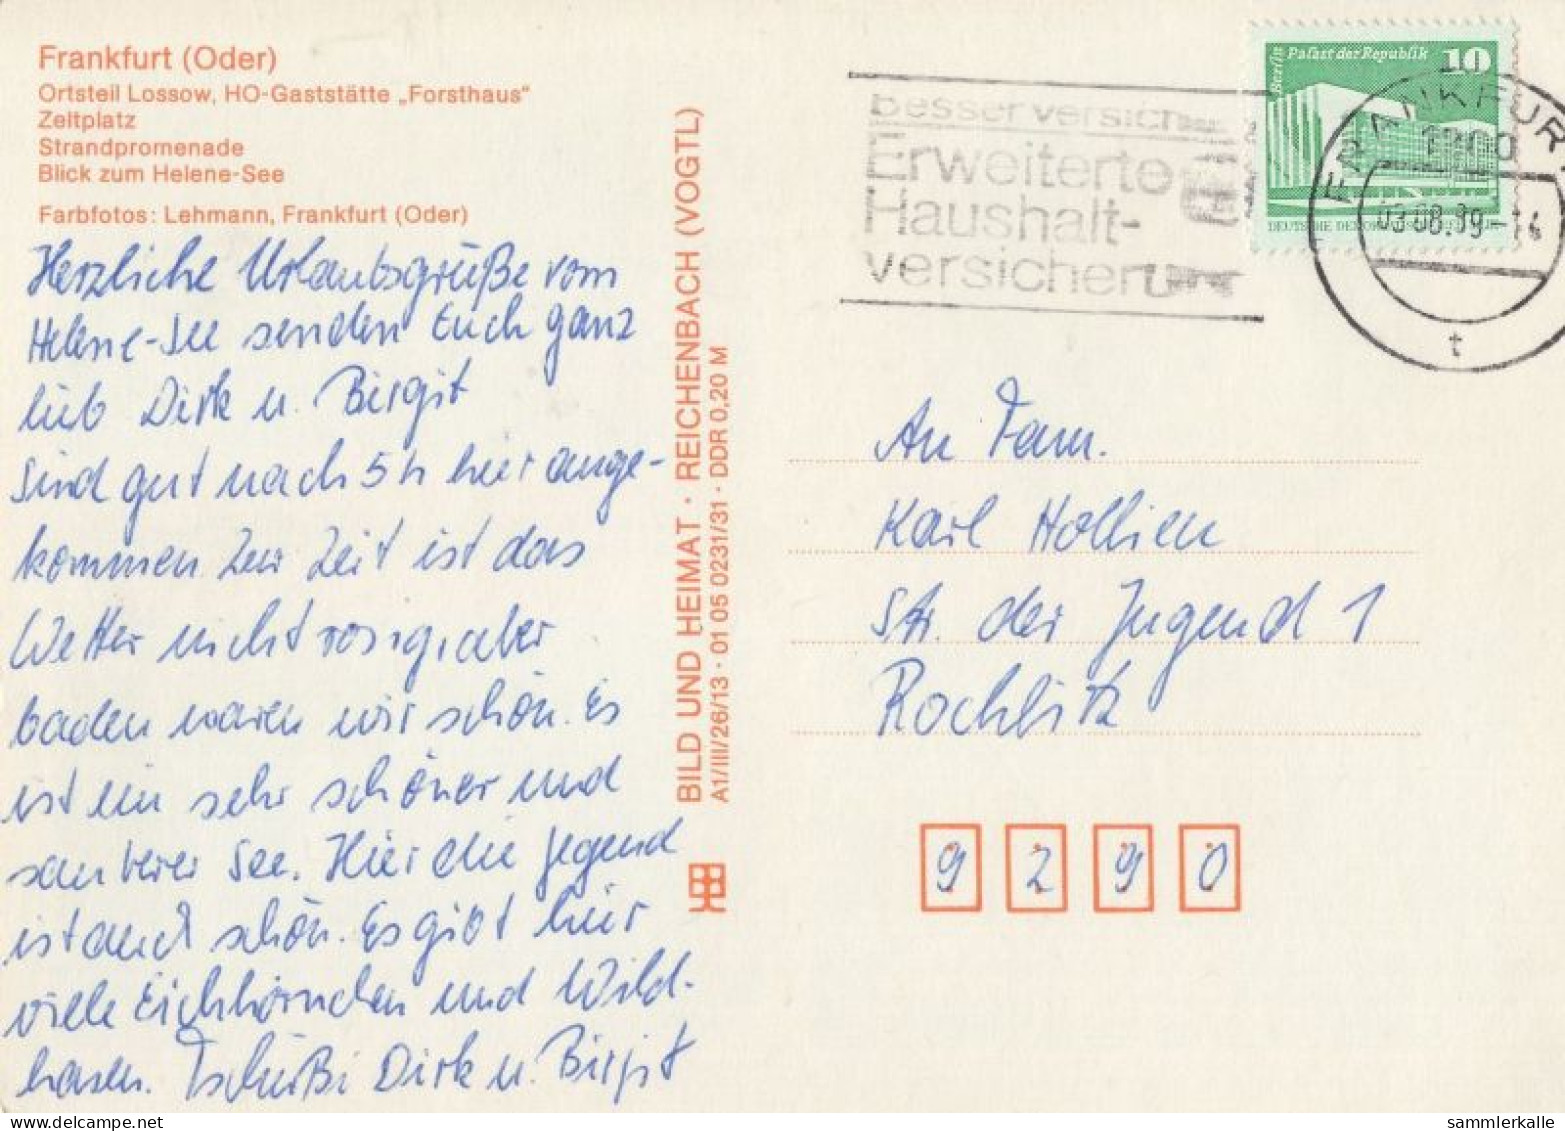 Frankfurt (Oder)
Ortsteil Lossow, HO-Gaststätte „Forsthaus"
Zeltplatz
Strandpromenade
Blick zum Helene-See
Farbfotos: Lehmann, Frankfurt (Oder)
Herzliche Urlaubsgrüße vom
Helene-See senden Euch ganz
lieb Dirk u. Birgit
Sind gut nach 5 h hier ange-
kommen. Zur Zeit ist das
Wetter nicht rosig, aber
baden waren wir schön. Es
ist ein sehr schöner und
sauberer See. Hier die Gegend
ist auch schön. Es gibt hier
viele Eichhörnchen und Wild-
hasen. Tschüßi Dirk u. Birgit
BILD UND HEIMAT · REICHENBACH (VOGTL)
A1/III/26/13 · 01 05 0231/31 · DDR 0,20 M
Besser versich
Erweiterte
Haushalt-
versicherun
Berlin Palast der Republik 10
DEUTSCHE DEMOKRATISCHE REPUBLIK
FRANKFUR
1200
03.08.89-14
t
An Fam.
Karl Hollien
Str. der Jugend 1
Rochlitz
9 2 9 0
delcampe.net
sammlerkalle